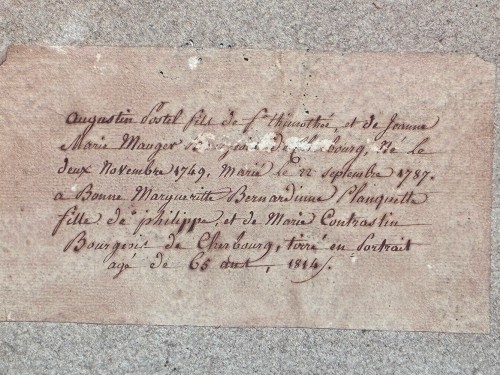 Augustin Postel fils de fs thimothée, et de Jeanne
Marie Mauger Bourgeois de Cherbourg Né le
deux Novembre 1749. Marié le 22 septembre 1787.
a Bonne Margueritte Bernardinne Planquette
fille de philippe, et de Marie Contrastin
Bourgeois de Cherbourg, tirré en Portrait
agé de 65 ans, 1814.